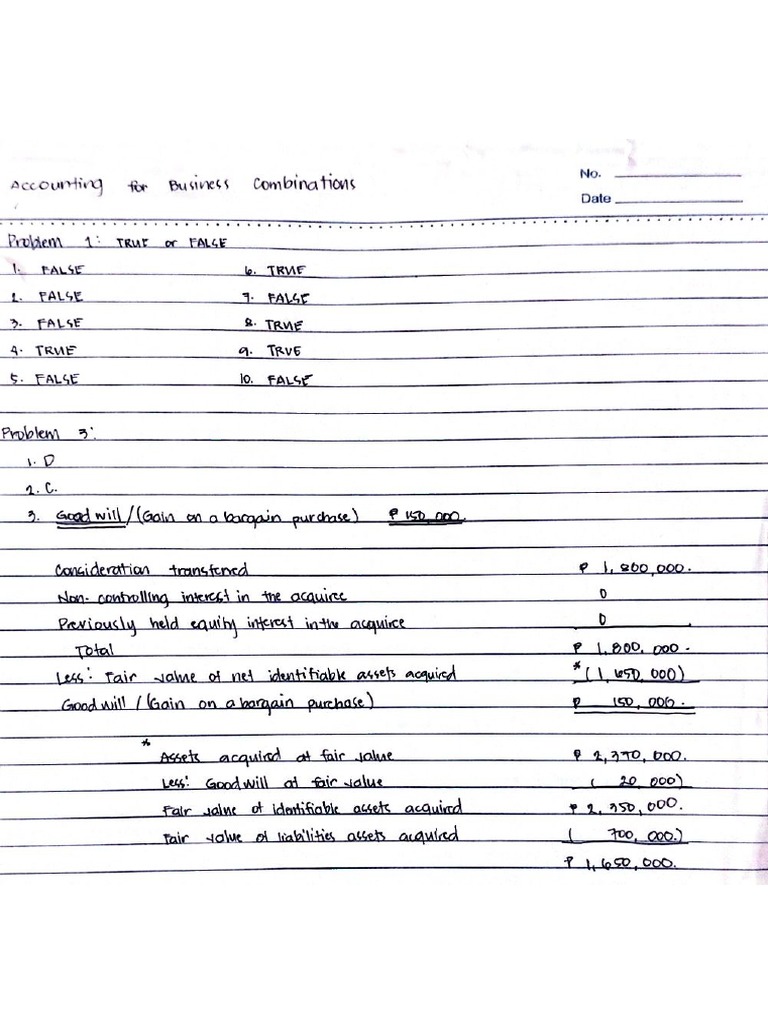 Accounting for Business Combinations
No.
Date
Problem 1: TRUE or FALSE
1. FALSE 6. TRUE
2. FALSE 7. FALSE
3. FALSE 8. TRUE
4. TRUE 9. TRUE
5. FALSE 10. FALSE
Problem 3:
1. D
2. C.
3. Goodwill / (Gain on a bargain purchase) ₱ 150,000.
Consideration transferred ₱ 1,800,000.
Non-controlling interest in the acquiree 0
Previously held equity interest in the acquiree 0
Total ₱ 1,800,000.
Less: Fair value of net identifiable assets acquired *(1,650,000)
Goodwill / (Gain on a bargain purchase) ₱ 150,000.
* Assets acquired at fair value ₱ 2,370,000.
Less: Goodwill at fair value ( 20 000)
Fair value of identifiable assets acquired ₱ 2,350,000.
Fair value of liabilities assets acquired ( 700,000.)
₱ 1,650,000.